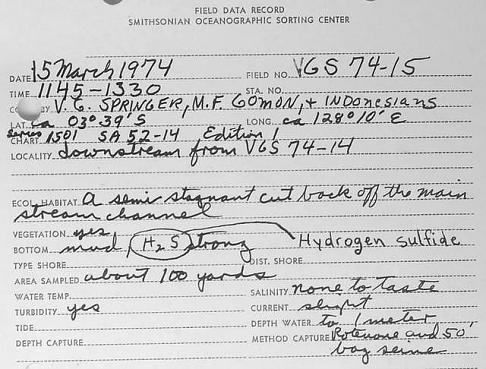 FIELD DATA RECORD
SMITHSONIAN OCEANOGRAPHIC SORTING CENTER
DATE 15 March 1974 FIELD NO. VGS 74-15
TIME 1145-1330 STA. NO.
BY V. G. SPRINGER, M.F. GOMON, + INDONESIANS
LAT. ca 03°39'S LONG. ca 128°10'E
Series CHART 1501 SA 52-14 Edition 1
LOCALITY downstream from VGS 74-14
ECOL. HABITAT A semi stagnant cut back off the main
stream channel
VEGETATION yes
BOTTOM mud, H2S strong Hydrogen sulfide
TYPE SHORE DIST. SHORE
AREA SAMPLED about 100 yards
WATER TEMP. SALINITY none to taste
TURBIDITY yes CURRENT slight
TIDE DEPTH WATER to 1 meter
DEPTH CAPTURE METHOD CAPTURE Rotenone and 50'
bag seine